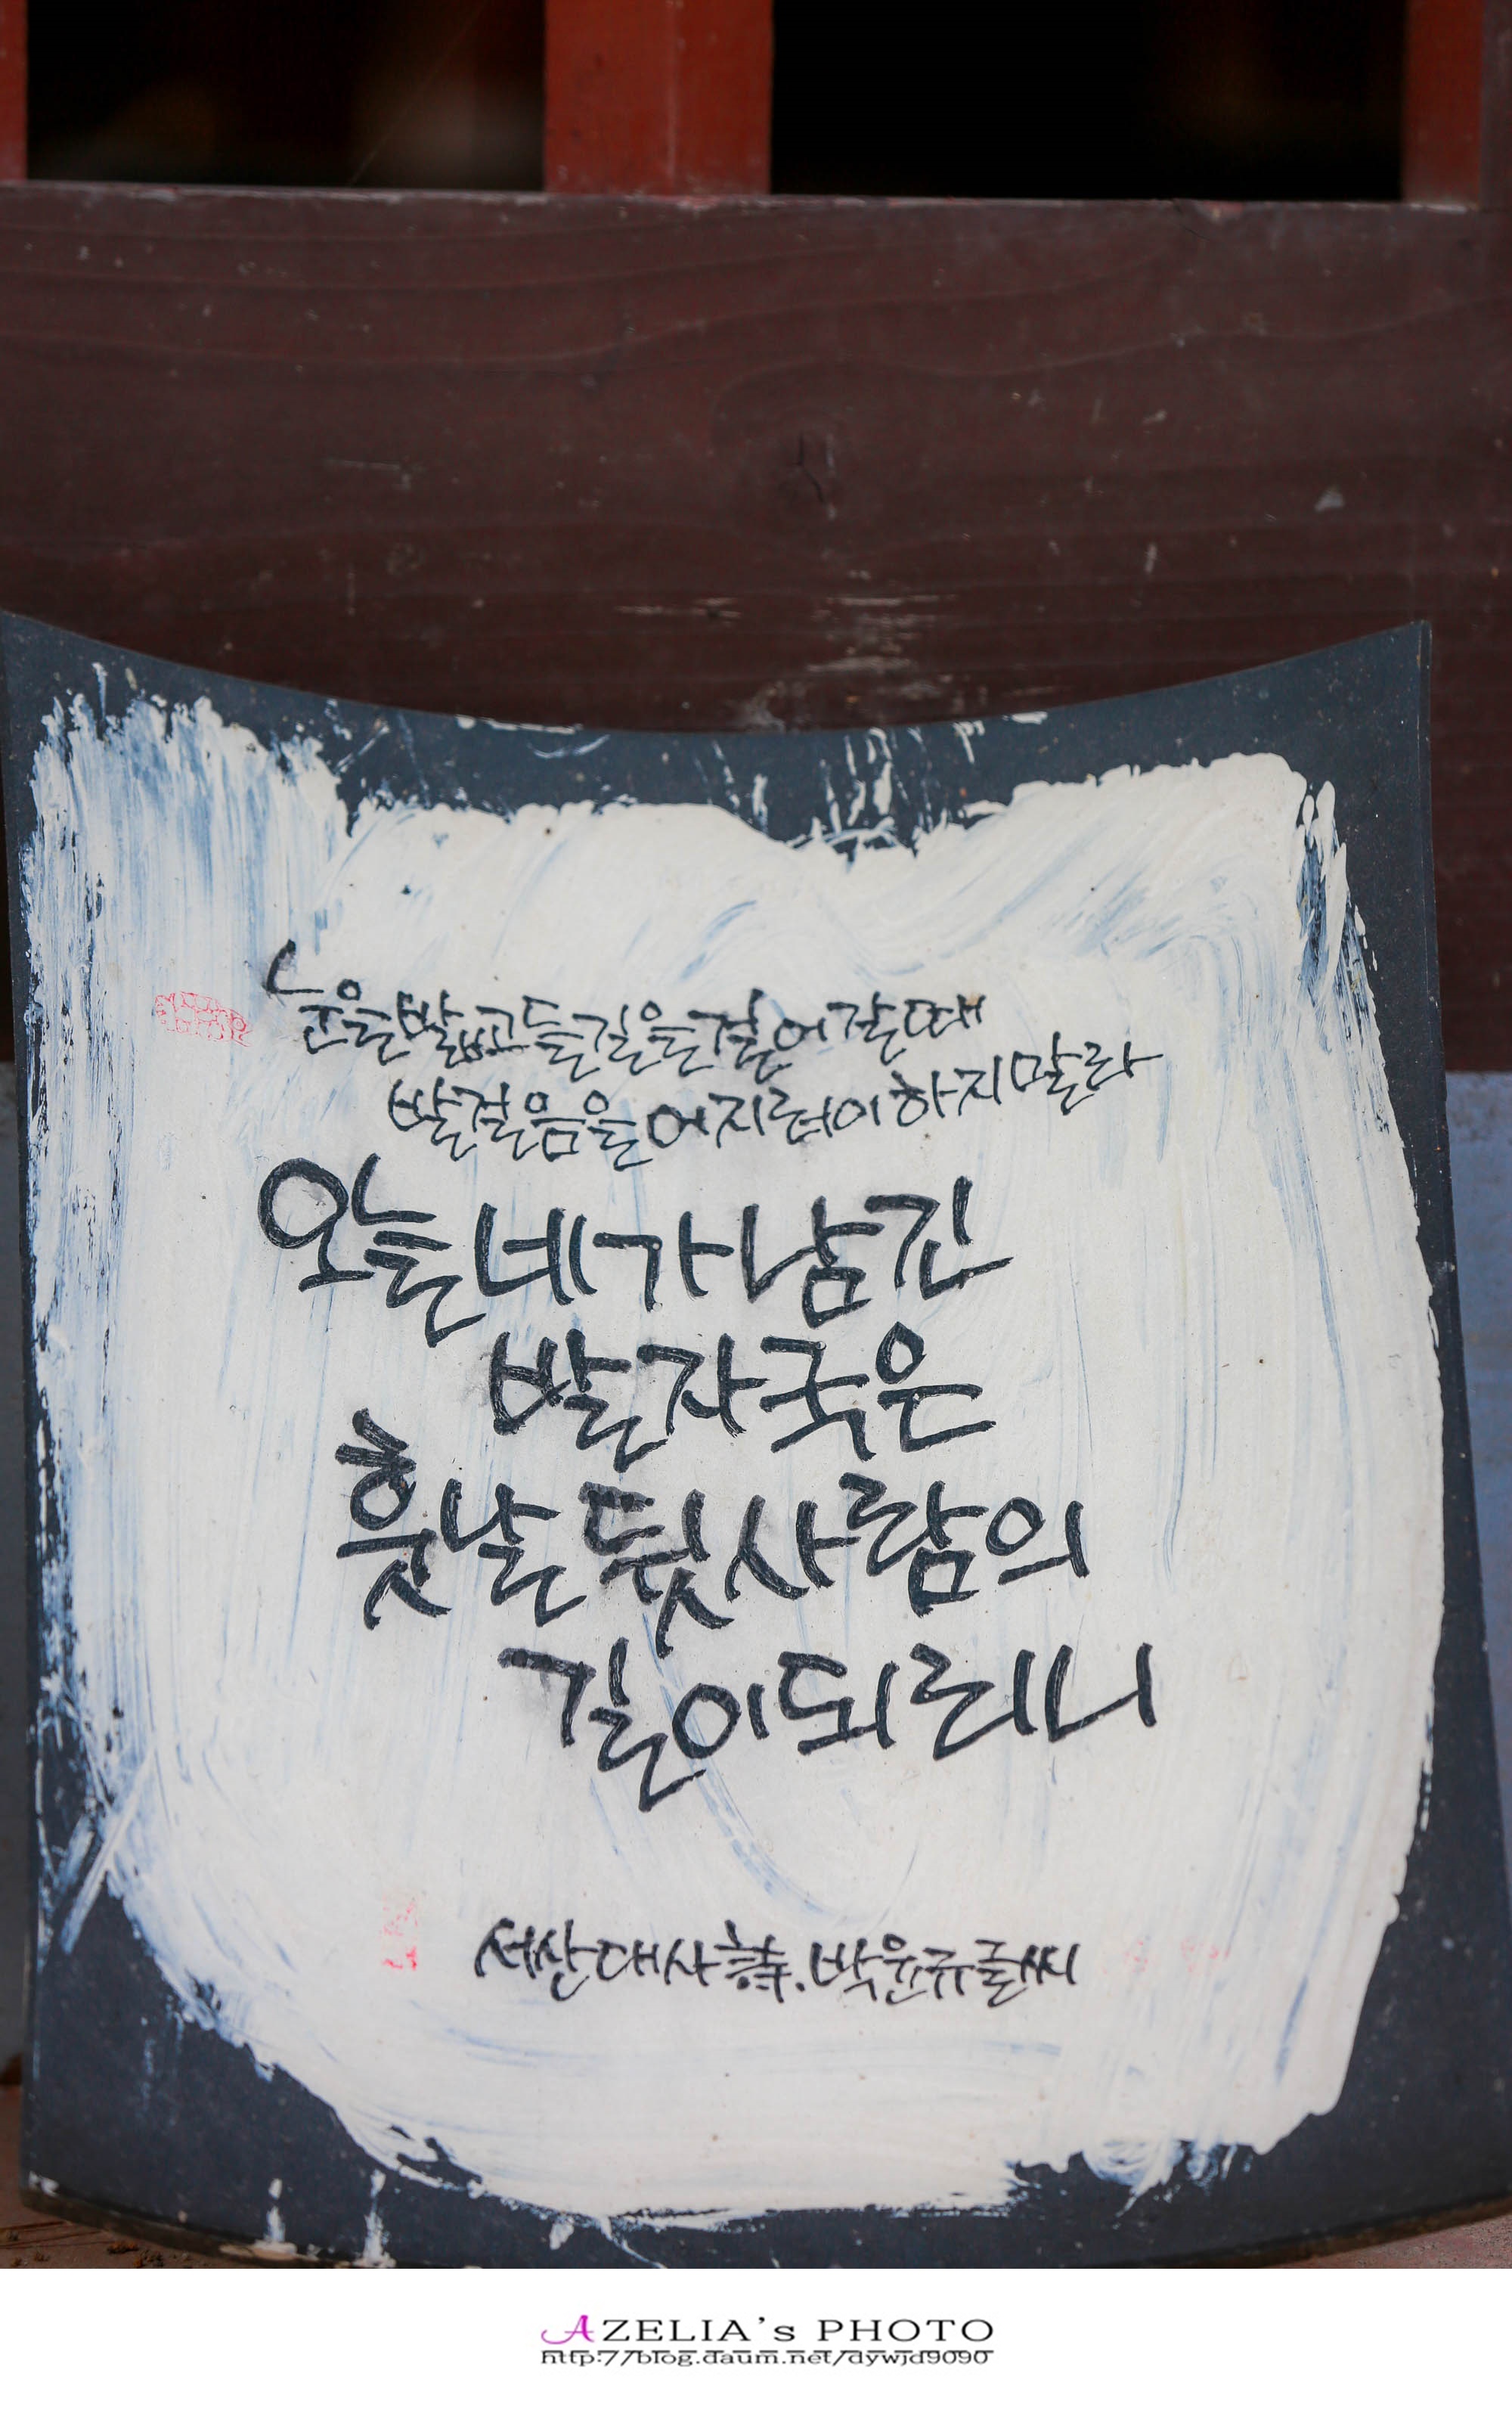 눈을밟고들길을걸어갈때
발걸음을어지러이하지말라
오늘네가남긴
발자국은
훗날뒷사람의
길이되리니
서산대사詩.박윤규글씨
AZELIA's PHOTO
http://blog.daum.net/dywjd9090